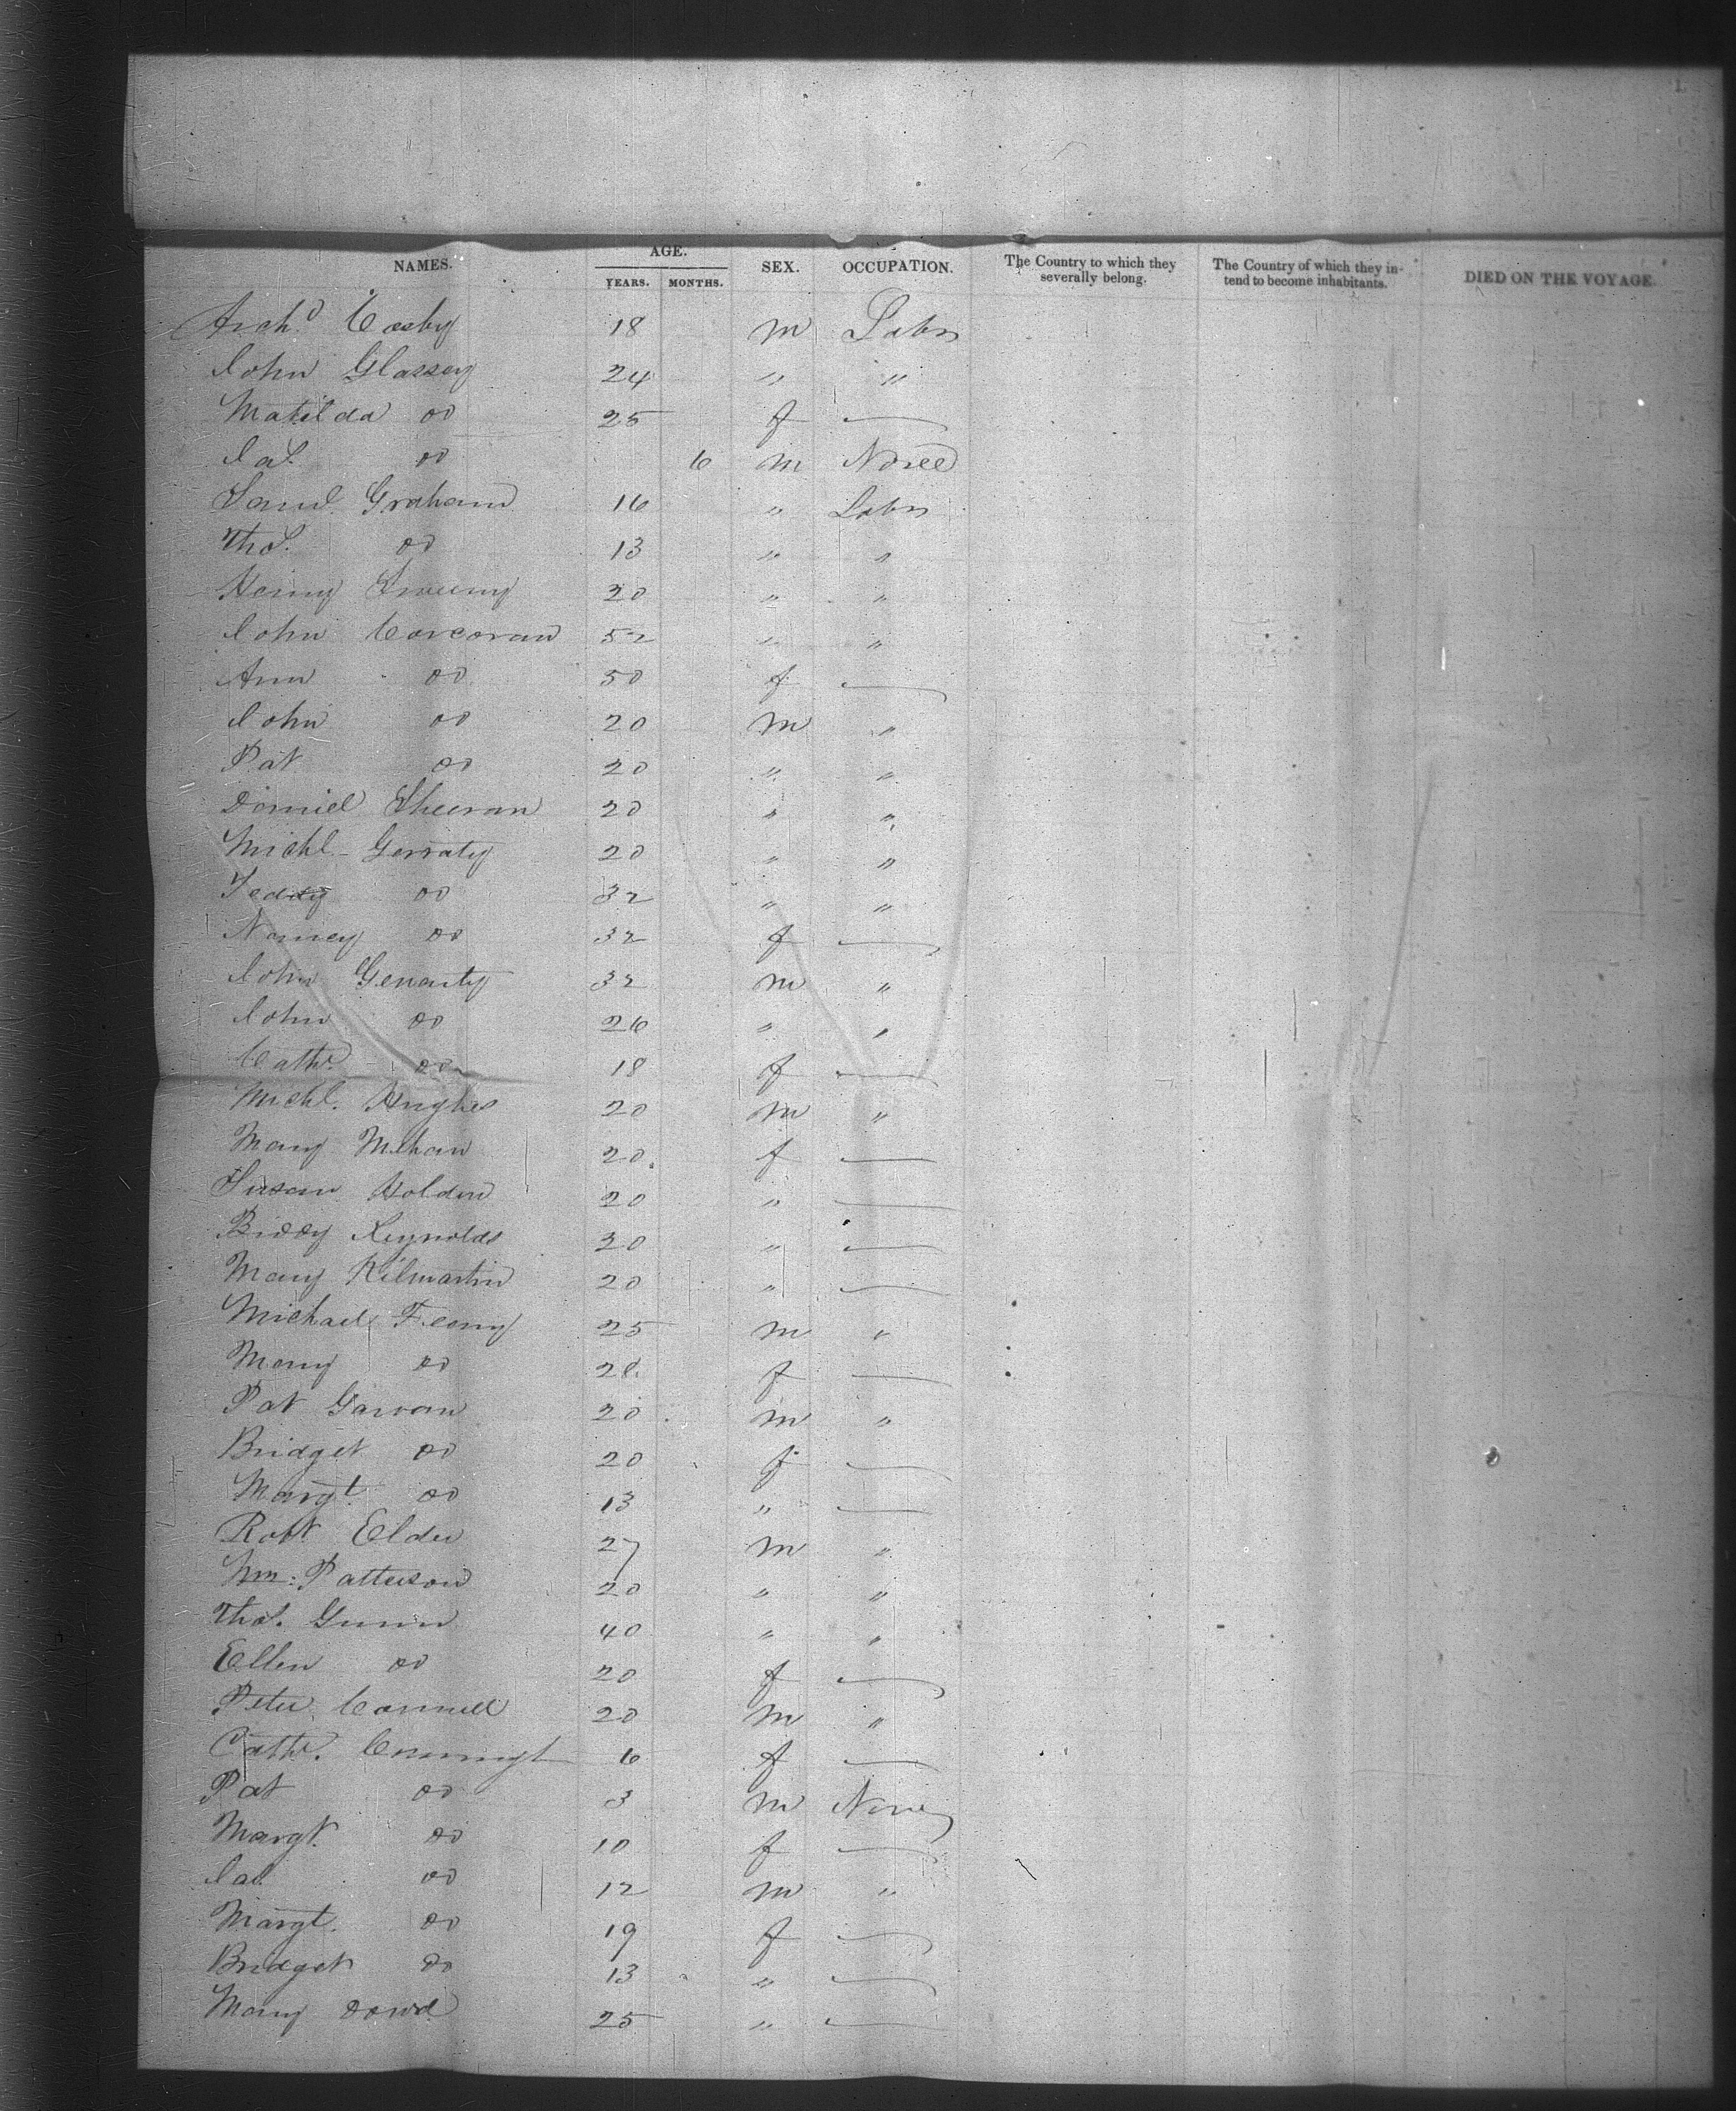 NAMES. AGE. SEX. OCCUPATION. The Country to which they severally belong. The Country of which they intend to become inhabitants. DIED ON THE VOYAGE.
YEARS. MONTHS.
Archd Cosby 18 m Labr
John Glassey 24 " "
Matilda do 25 f —
Jas. do 6 m None
Saml Graham 16 " Labr
Thos. do 13 " "
Henry Sweeny 20 " "
John Corcoran 52 " "
Ann do 50 f —
John do 20 m "
Pat do 20 " "
Daniel Sheeran 20 " "
Michl Gerraty 20 " "
Teddy do 32 " "
Nancy do 32 f —
John Gerraty 32 m "
John do 26 " "
Cathe do 18 f —
Michl. Hughes 20 m "
Mary Mehan 20 f —
Susan Holden 20 " —
Biddy Reynolds 20 " —
Mary Kilmartin 20 " —
Michael Feeny 25 m "
Mary do 28 f —
Pat Garvan 20 m "
Bridget do 20 f —
Margt. do 13 " —
Robt Elder 27 m "
Wm: Patterson 20 " "
Thos. Gunn 40 " "
Ellen do 20 f —
Peter Connell 20 m "
Cathe. 6 f —
Pat do 3 m None
Margt. do 10 f —
Jas do 12 m "
Margt. do 19 f —
Bridget do 13 " —
Mary Dowd 25 " —